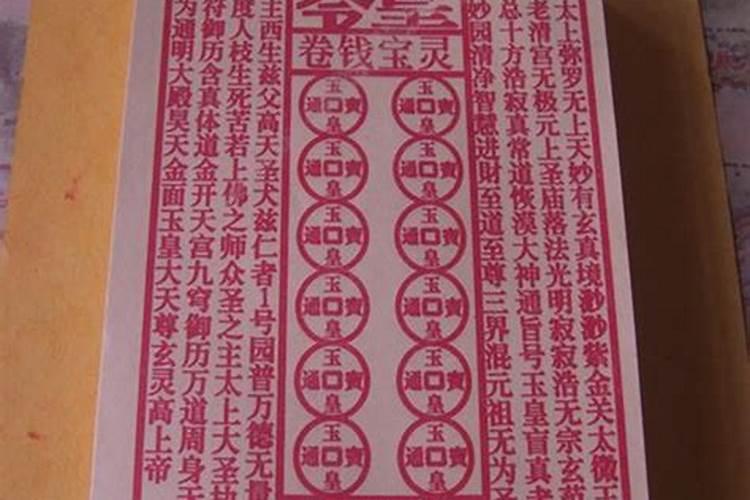 太上弥罗无上天妙有玄真境渺渺紫金关太微玉
老清宫无极元上圣庙落法光明寂寂浩无宗玄
总十方浩寂真常道恢漠大神通旨号玉皇盲真
妙园清净智慧进財至道至尊三界混元祖无为圣
皇令
灵宝钱卷
玉皇通寶
玉皇通寶
玉皇通寶
玉皇通寶
玉皇通寶
玉皇通寶
玉皇通寶
玉皇通寶
玉皇通寶
玉皇通寶
玉皇通寶
玉皇通寶
主西生兹父高天圣犬兹仁者1号园普万德无量
度人枝生死苦若上佛之师众圣之主太上大圣执
符御历含真体道金开天宫九穹御历万道周身无
为通明大殿昊天金面玉皇大天尊玄灵高上帝